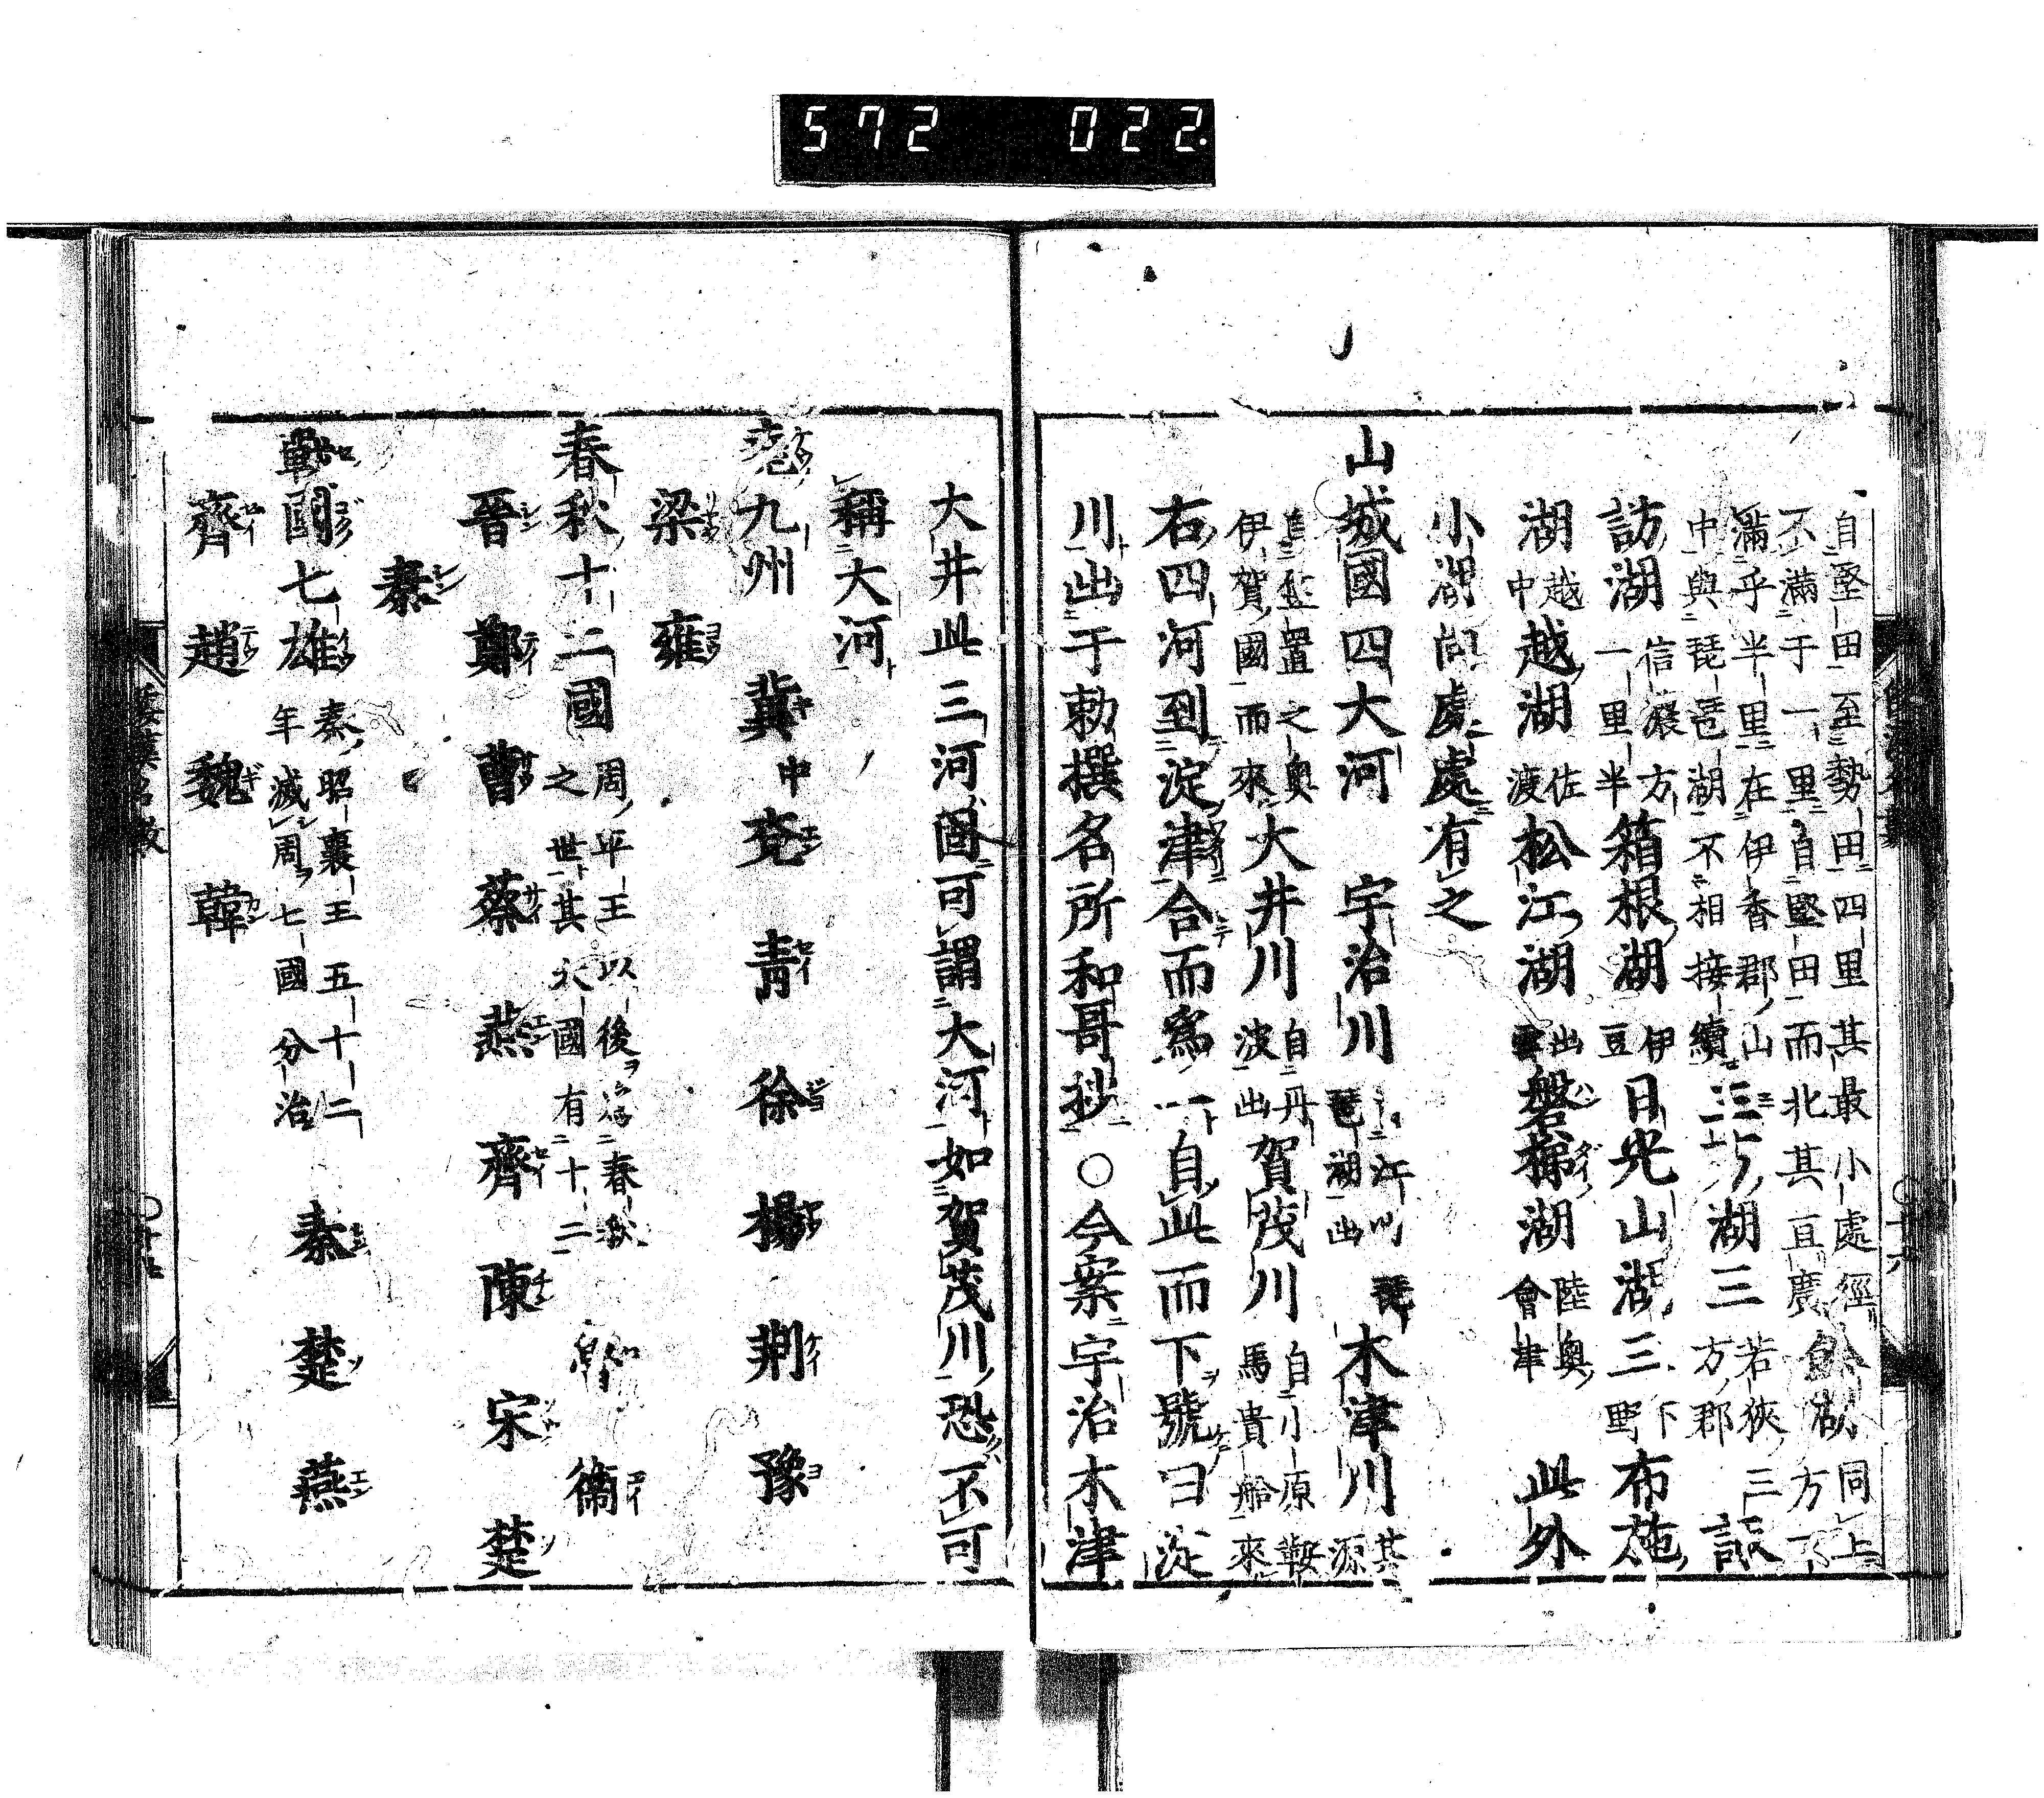 572 022
自堅田至勢田四里其最小處徑
不滿于一里自堅田而北其亘廣 餘湖 同上
滿乎半里在伊香郡山
中與琵琶湖不相接續 三方湖三 若狹三方郡 諏
訪湖 信濃方一里半 箱根湖 伊豆 日光山湖三 下野 布施
湖 越中 越湖 佐渡 松江湖 出雲 磐梯湖 陸奧會津 此外
小湖間處處有之
山城國四大河 宇治川 琵琶湖出 木津川 其源
伊賀國而來 大井川 自丹波出 賀茂川 自小原鞍馬貴船來
右四河到淀津合而爲一自此而下號曰淀
川出于勅撰名所和哥抄○今案宇治木津
大井此三河固可謂大河如賀茂川恐不可
稱大河
堯九州 冀中 兗 青 徐 揚 荆 豫
梁 雍
春秋十二國 周平王以後 春秋之世其大國有十二 魯 衞
晉 鄭 曹 蔡 燕 齊 陳 宋 楚
秦
戰國七雄 秦昭襄王五十二年滅周七國分治 秦 楚 燕
齊 趙 魏 韓